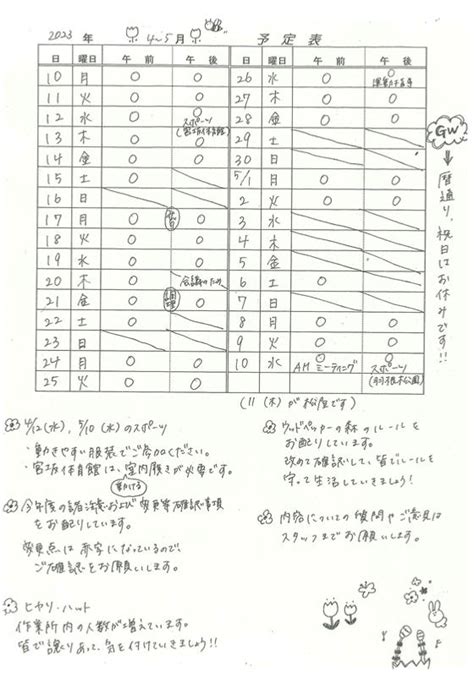 2023 年 4~5月 予定表
日 曜日 午前 午後
10 月 ○ ○
11 火 ○ ○
12 水 ○ ○ スポーツ(宮坂体育館)
13 木 ○ ○
14 金 ○ ○
15 土 ○
16 日
17 月 ○ ○
18 火 ○ ○
19 水 ○ ○
20 木 ○ 会議のため
21 金 ○ ○
22 土 ○
23 日
24 月 ○ ○
25 火 ○ ○
日 曜日 午前 午後
26 水 ○ ○
27 木 ○ ○
28 金 ○ ○
29 土
30 日
5/1 月 ○ ○
2 火 ○ ○
3 水
4 木
5 金
6 土 ○
7 日
8 月 ○ ○
9 火 ○ ○
10 水 ○ AM ミーティング ○ スポーツ(羽根木公園)
GW
→暦通り、祝日はお休みです!!
(11(木)が です)
4/12(水), 5/10(水)のスポーツ
・動きやすい服装でご参加ください。
・宮坂体育館は、室内履きが必要です。
今年度の諸注意および変更等確認事項
をお配りしています。
変更点は赤字になっているので、
ご確認をお願いします。
ヒヤリ・ハット
作業所内の人数が増えています。
皆で譲りあって、気を付けていきましょう!!
ウッドペッカーの森のルールを
お配りしています。
改めて確認して、皆でルールを
守って生活していきましょう!
内容についての質問やご意見は
スタッフまでお願いします。